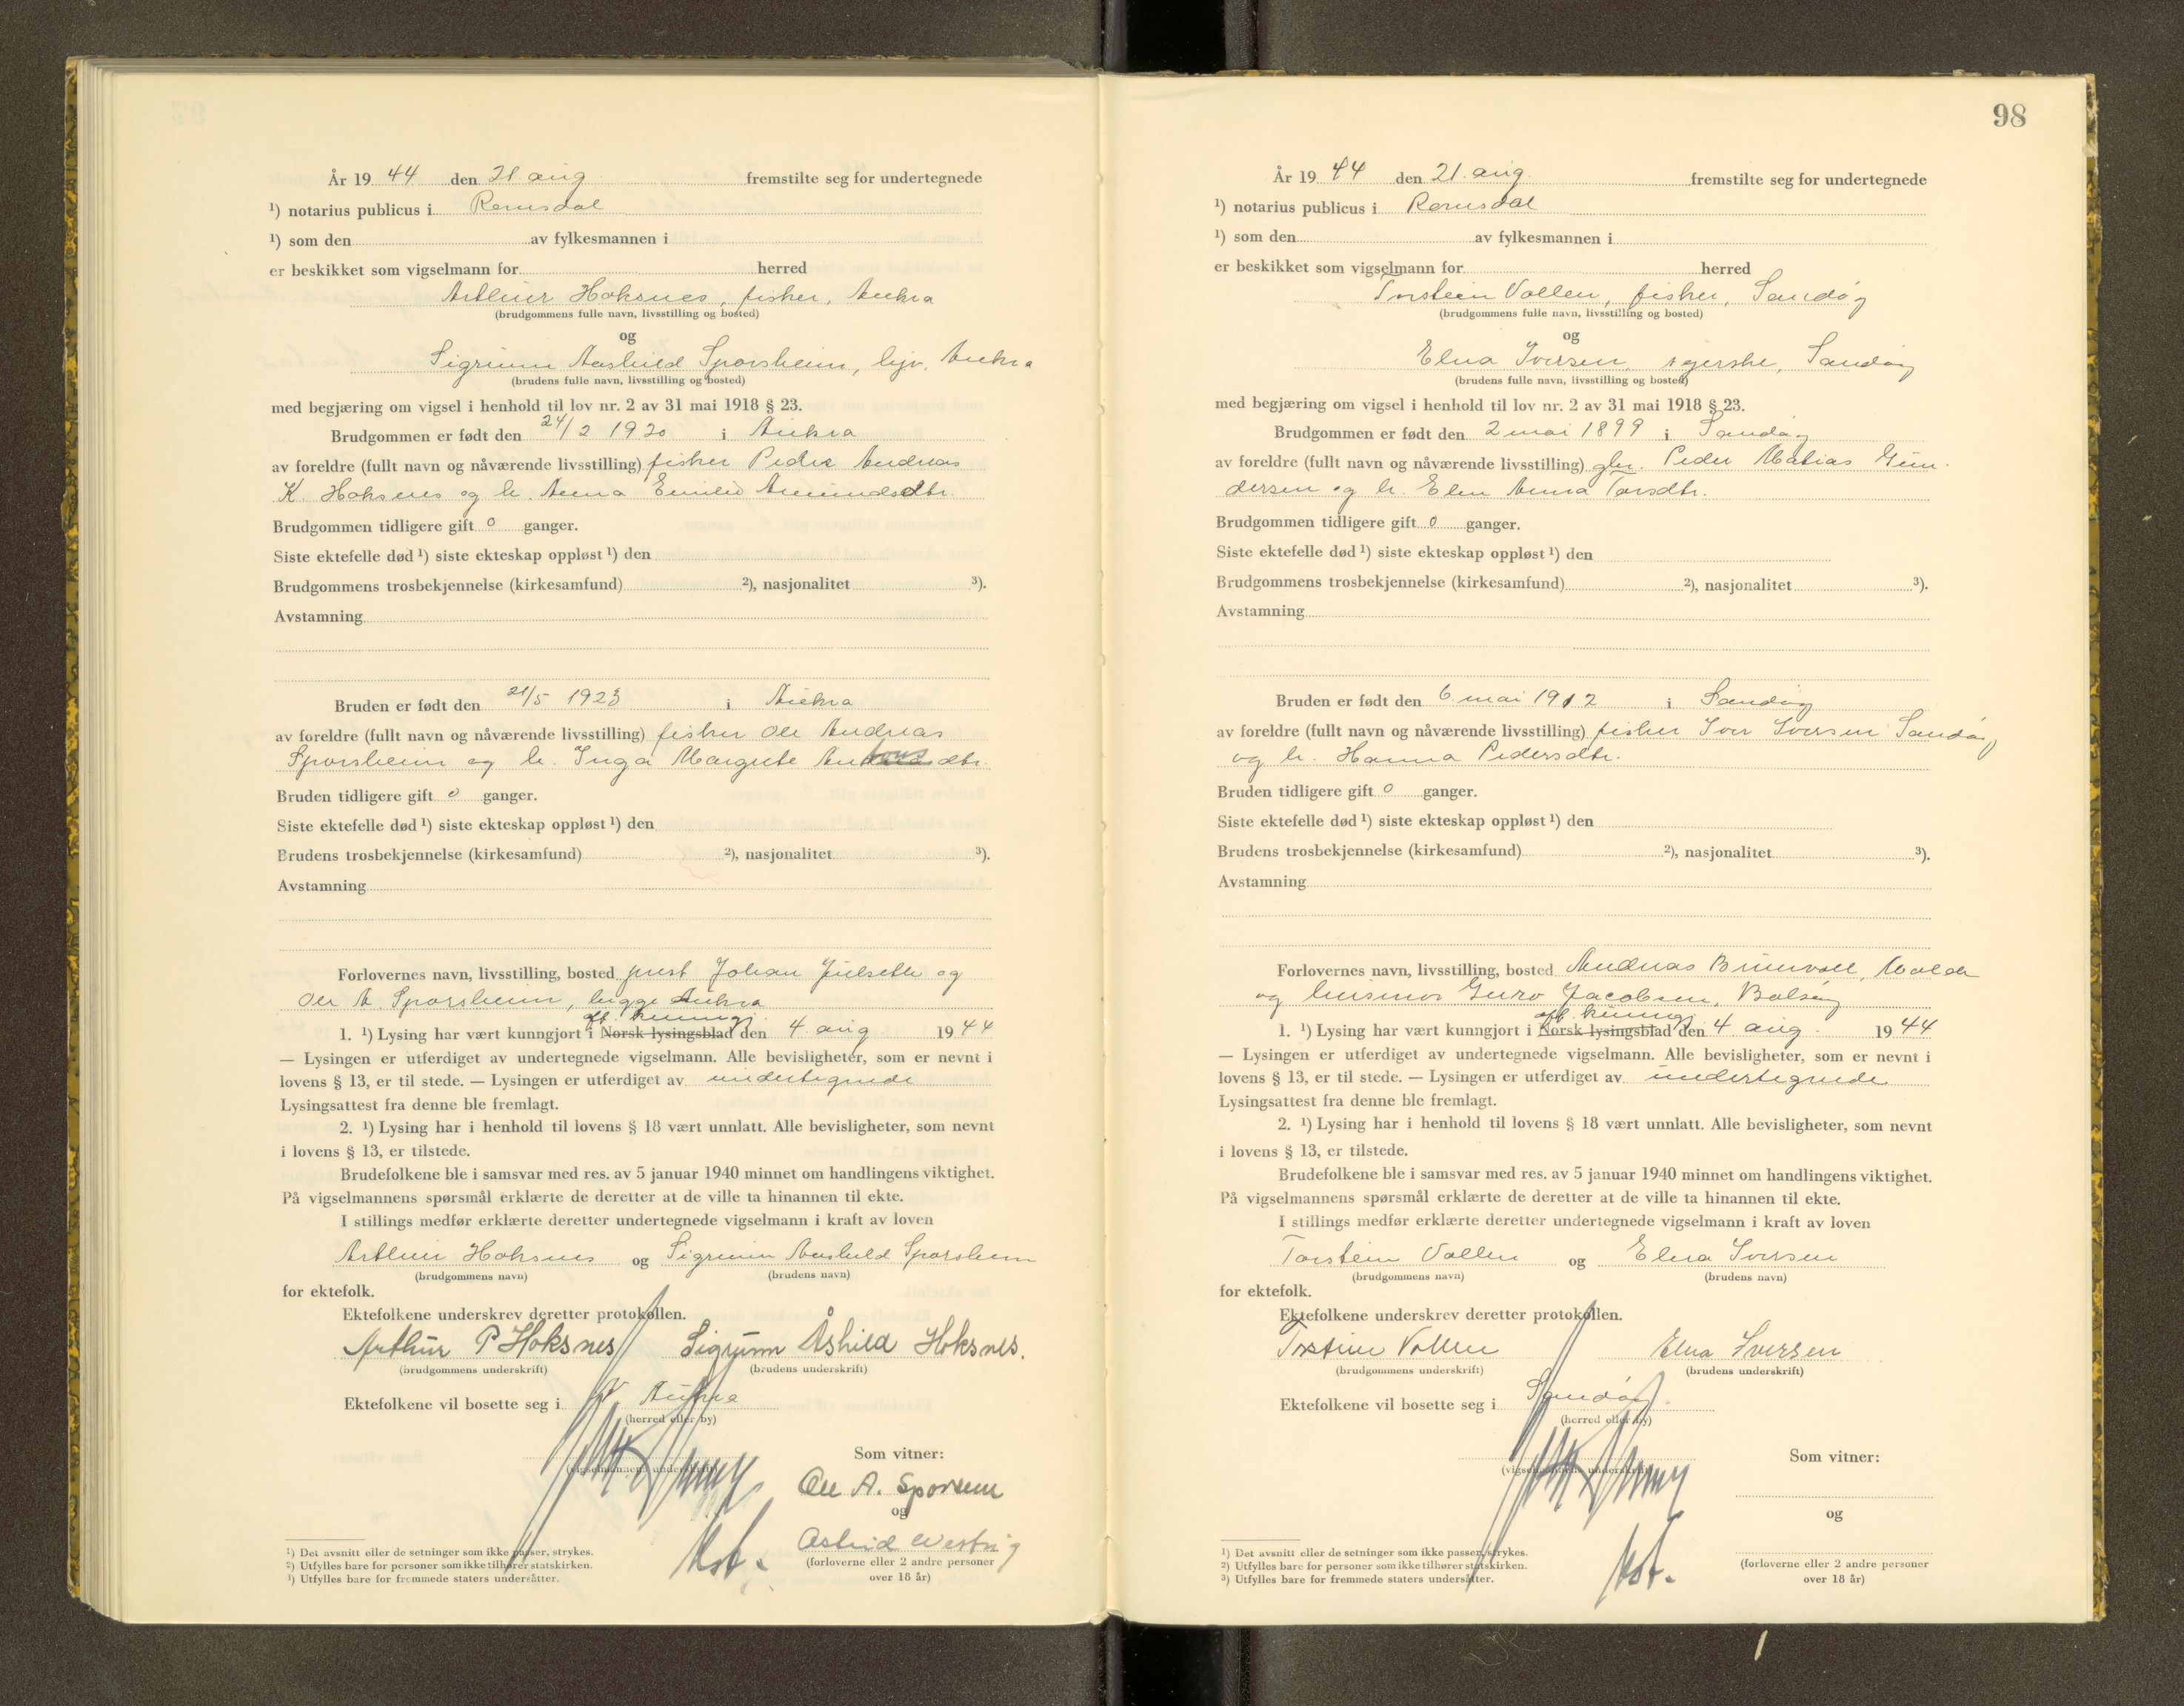 År 19 44 den 21 aug. fremstilte seg for undertegnede
¹) notarius publicus i Romsdal
¹) som den av fylkesmannen i
er beskikket som vigselmann for herred
Arthur Hoksnes, fisker, Aukra
(brudgommens fulle navn, livsstilling og bosted)
og
Sigrunn Aashild Sporsheim, hjv. Aukra
(brudens fulle navn, livsstilling og bosted)
med begjæring om vigsel i henhold til lov nr. 2 av 31 mai 1918 § 23.
Brudgommen er født den 24/2 1920 i Aukra
av foreldre (fullt navn og nåværende livsstilling) fisker Peder Andreas
K. Hoksnes og h. Anna Emilie Amundsdtr.
Brudgommen tidligere gift 0 ganger.
Siste ektefelle død ¹) siste ekteskap oppløst ¹) den
Brudgommens trosbekjennelse (kirkesamfund) ²), nasjonalitet ³).
Avstamning
Bruden er født den 21/5 1923 i Aukra
av foreldre (fullt navn og nåværende livsstilling) fisker Ole Andreas
Sporsheim og h. Inga Margrete dtr.
Bruden tidligere gift 0 ganger.
Siste ektefelle død ¹) siste ekteskap oppløst ¹) den
Brudens trosbekjennelse (kirkesamfund) ²), nasjonalitet ³).
Avstamning
Forlovernes navn, livsstilling, bosted prest Johan Julseth og
Ole A. Sporsheim, begge Aukra
off. kunngj.
1. ¹) Lysing har vært kunngjort i Norsk lysingsblad den 4 aug 19 44
— Lysingen er utferdiget av undertegnede vigselmann. Alle bevisligheter, som er nevnt i
lovens § 13, er til stede. — Lysingen er utferdiget av undertegnede
Lysingsattest fra denne ble fremlagt.
2. ¹) Lysing har i henhold til lovens § 18 vært unnlatt. Alle bevisligheter, som nevnt
i lovens § 13, er tilstede.
Brudefolkene ble i samsvar med res. av 5 januar 1940 minnet om handlingens viktighet.
På vigselmannens spørsmål erklærte de deretter at de ville ta hinannen til ekte.
I stillings medfør erklærte deretter undertegnede vigselmann i kraft av loven
Arthur Hoksnes og Sigrunn Aashild Sporsheim
(brudgommens navn) (brudens navn)
for ektefolk.
Ektefolkene underskrev deretter protokollen.
Arthur P Hoksnes Sigrunn Åshild Hoksnes.
(brudgommens underskrift) (brudens underskrift)
Ektefolkene vil bosette seg i Aukra
(herred eller by)
Som vitner:
(vigselmannens underskrift)
Ole A. Sporsem
og
Astrid Westvig
(forloverne eller 2 andre personer
over 18 år)
¹) Det avsnitt eller de setninger som ikke passer, strykes.
²) Utfylles bare for personer som ikke tilhører statskirken.
³) Utfylles bare for fremmede staters undersåtter.
98
År 19 44 den 21. aug. fremstilte seg for undertegnede
¹) notarius publicus i Romsdal
¹) som den av fylkesmannen i
er beskikket som vigselmann for herred
Torstein Vollen, fisker, Sandøy
(brudgommens fulle navn, livsstilling og bosted)
og
Elna Iversen, syerske, Sandøy
(brudens fulle navn, livsstilling og bosted)
med begjæring om vigsel i henhold til lov nr. 2 av 31 mai 1918 § 23.
Brudgommen er født den 2 mai 1899 i Sandøy
av foreldre (fullt navn og nåværende livsstilling) gbr. Peder Matias Gun-
dersen og h. Elen Anna Torsdtr.
Brudgommen tidligere gift 0 ganger.
Siste ektefelle død ¹) siste ekteskap oppløst ¹) den
Brudgommens trosbekjennelse (kirkesamfund) ²), nasjonalitet ³).
Avstamning
Bruden er født den 6. mai 1912 i Sandøy
av foreldre (fullt navn og nåværende livsstilling) fisker Iver Iversen Sandøy
og h. Hanna Pedersdtr.
Bruden tidligere gift 0 ganger.
Siste ektefelle død ¹) siste ekteskap oppløst ¹) den
Brudens trosbekjennelse (kirkesamfund) ²), nasjonalitet ³).
Avstamning
Forlovernes navn, livsstilling, bosted Andreas Brunvoll, Molde
og husmor Guro Jacobsen, Bolsøy
off. kunngj.
1. ¹) Lysing har vært kunngjort i Norsk lysingsblad den 4 aug. 19 44
— Lysingen er utferdiget av undertegnede vigselmann. Alle bevisligheter, som er nevnt i
lovens § 13, er til stede. — Lysingen er utferdiget av undertegnede
Lysingsattest fra denne ble fremlagt.
2. ¹) Lysing har i henhold til lovens § 18 vært unnlatt. Alle bevisligheter, som nevnt
i lovens § 13, er tilstede.
Brudefolkene ble i samsvar med res. av 5 januar 1940 minnet om handlingens viktighet.
På vigselmannens spørsmål erklærte de deretter at de ville ta hinannen til ekte.
I stillings medfør erklærte deretter undertegnede vigselmann i kraft av loven
Torstein Vollen og Elna Iversen
(brudgommens navn) (brudens navn)
for ektefolk.
Ektefolkene underskrev deretter protokollen.
Torstein Vollen Elna Iversen
(brudgommens underskrift) (brudens underskrift)
Ektefolkene vil bosette seg i Sandøy
(herred eller by)
Som vitner:
(vigselmannens underskrift)
og
(forloverne eller 2 andre personer
over 18 år)
¹) Det avsnitt eller de setninger som ikke passer, strykes.
²) Utfylles bare for personer som ikke tilhører statskirken.
³) Utfylles bare for fremmede staters undersåtter.